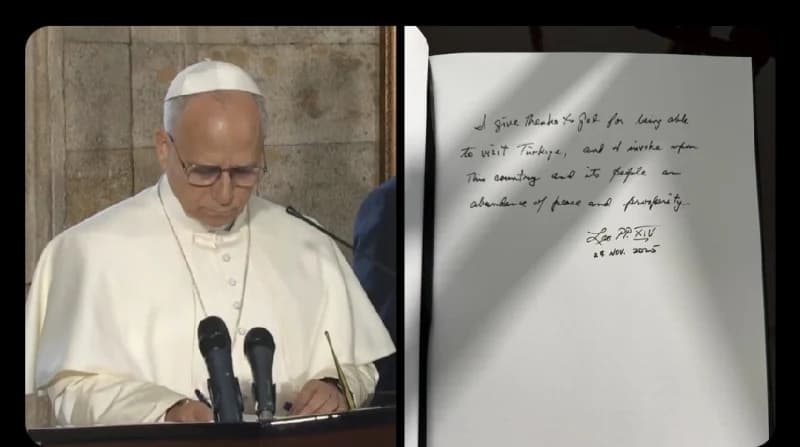 I give thanks to God for being able
to visit Türkiye, and I invoke upon
this country and its people an
abundance of peace and prosperity.
Leo PP. XIV
28 NOV. 2025